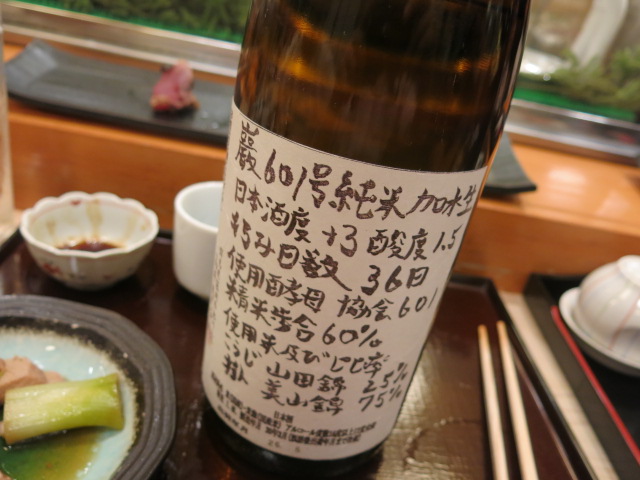 巌601号純米加水生
日本酒度 +3 酸度1.5
もろみ日数 36日
使用酵母 協会601
精米歩合60%
使用米及び比率
こうじ 山田錦 25%
掛 美山錦 75%
日本酒